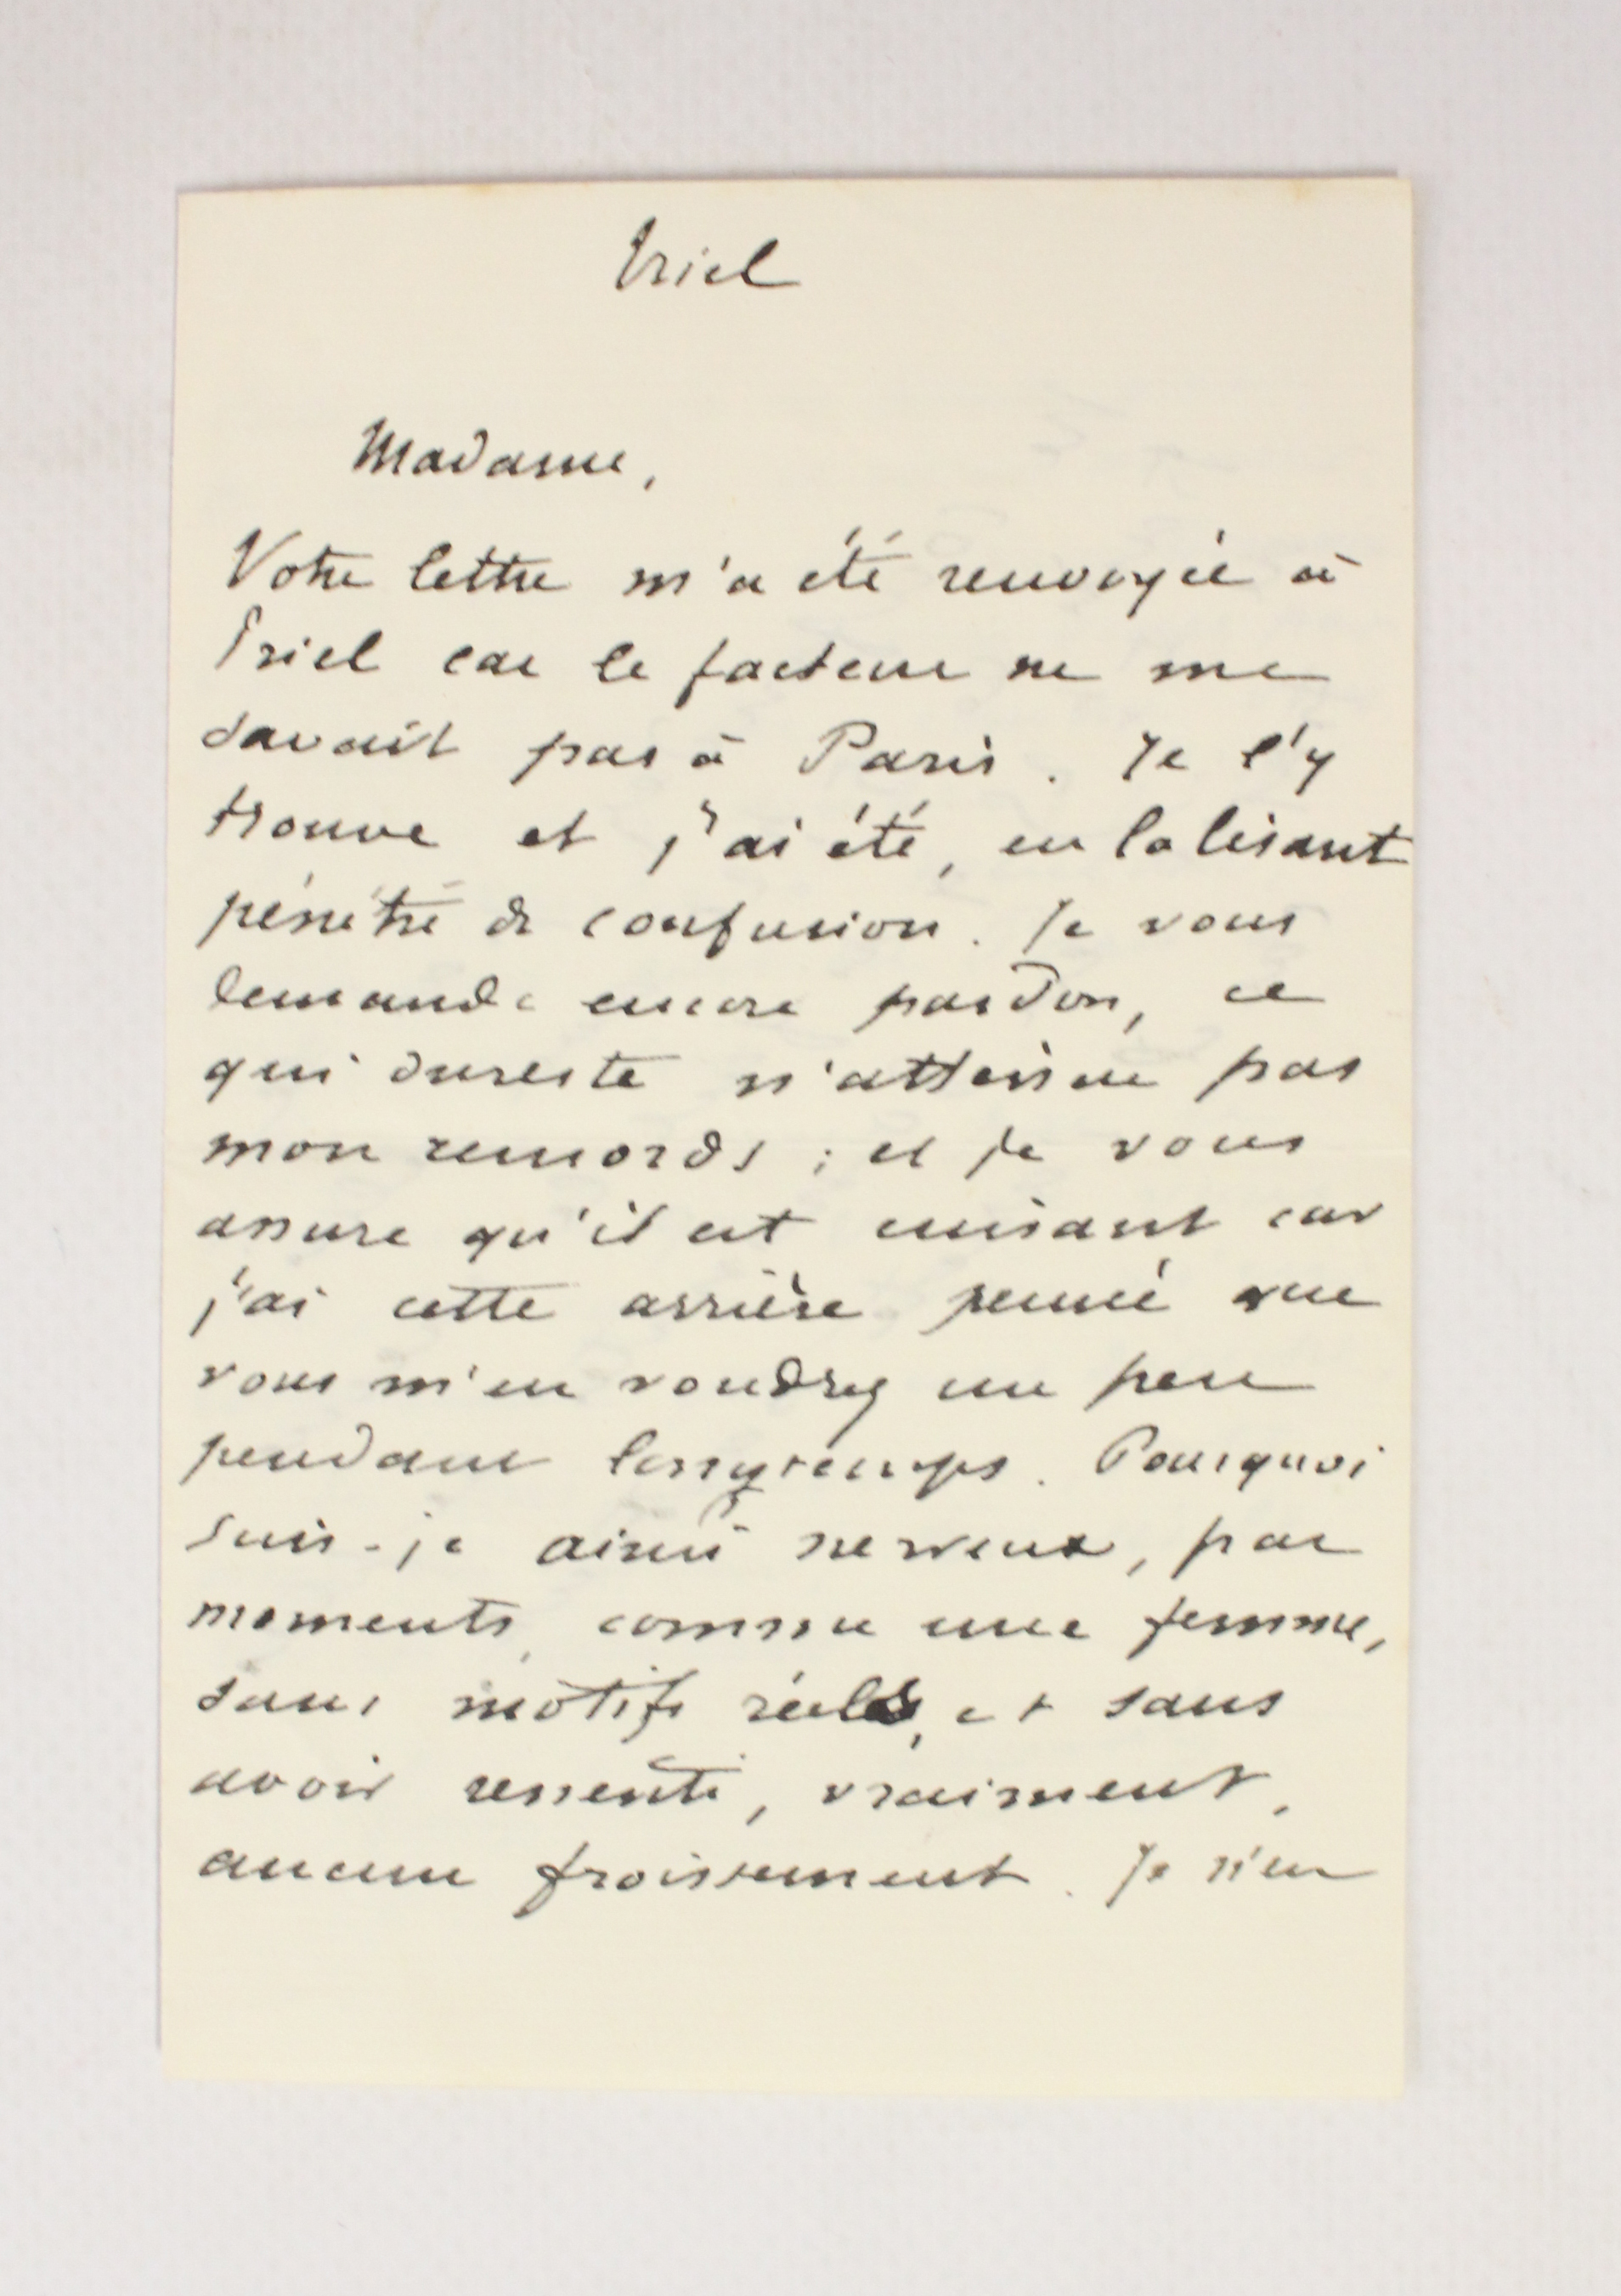 Triel
Madame,
Votre lettre m'a été renvoyée à
Triel car le facteur ne me
savait pas à Paris. Je l'y
trouve et j'ai été, en la lisant
pénétré de confusion. Je vous
demande encore pardon, ce
qui dureste n'atténue pas
mon remords ; et je vous
assure qu'il est cuisant car
j'ai cette arrière pensée que
vous m'en voudrez un peu
pendant longtemps. Pourquoi
suis-je ainsi nerveux, par
moments, comme une femme,
sans motifs réels, et sans
avoir ressenti, vraiment,
aucun froissement. Je n'en